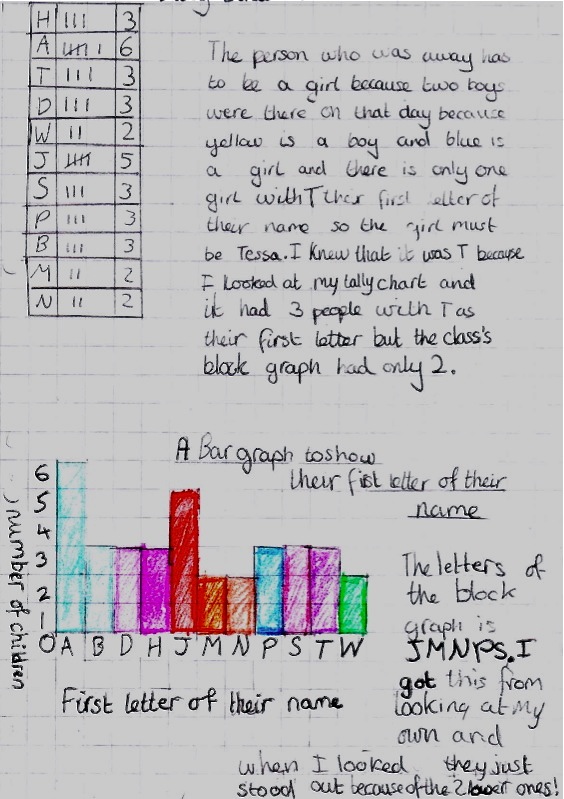 H III 3
A IIII I 6
T III 3
D III 3
W II 2
J IIII 5
S III 3
P III 3
B III 3
M II 2
N II 2
The person who was away has
to be a girl because two boys
were there on that day because
yellow is a boy and blue is
a girl and there is only one
girl with T their first letter of
their name so the girl must
be Tessa. I knew that it was T because
I looked at my tally chart and
it had 3 people with T as
their first letter but the class's
block graph had only 2.
A Bar graph to show
their fist letter of their
name
6
5
4
3
2
1
0
number of children
A B D H J M N P S T W
First letter of their name
The letters of
the block
graph is
JMNPS. I
got this from
looking at my
own and
when I looked they just
stood out because of the 2 lowest ones!